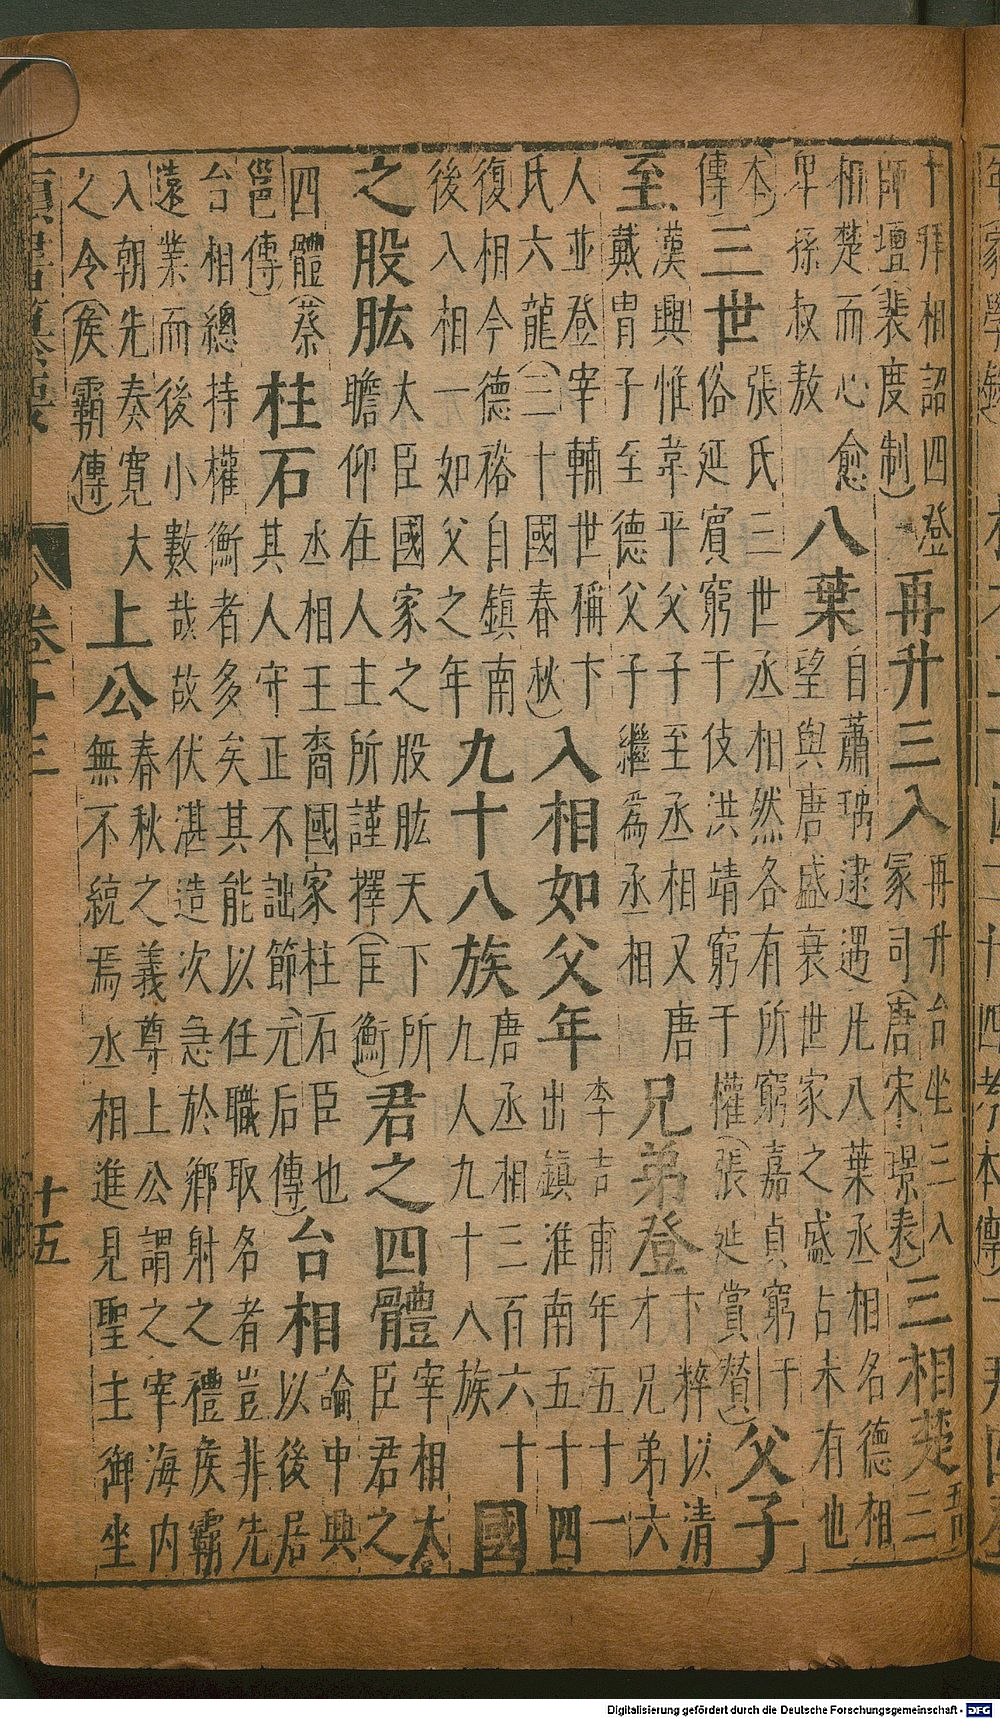 十拜相詔四登
師壇(裴度制)
再升三入
再升台坐三入
冢司(唐宋璟表)
三相楚
三
相楚而心愈
卑孫叔敖
八葉
自蕭瑀逮遇凡八葉丞相名德相
望與唐盛衰世家之盛古未有也
本
傳)
三世
張氏三世丞相然各有所窮嘉貞窮于
俗延賓窮于伎洪靖窮于權(張延賞贊)
父子
至
漢興惟韋平父子至丞相又唐
戴冑子至德父子繼為丞相
兄弟登
卞粹以清
才兄弟六
人並登宰輔世稱卞
氏六龍(三十國春秋)
入相如父年
李吉甫年五十一
出鎮淮南五十四
復相今德裕自鎮南
後入相一如父之年
九十八族
唐丞相三百六十
九人九十八族
國
之股肱
大臣國家之股肱天下所
瞻仰在人主所謹擇(匡衡)
君之四體
宰相大
臣君之
四體(蔡
邕傳)
柱石
丞相王商國家柱石臣也
其人守正不詘節(元后傳)
台相
論中興
以後居
台相總持權衡者多矣其能以任職取名者豈非先
遠業而後小數哉故伏湛造次急於鄉射之禮侯霸
入朝先奏寬大
之令(侯霸傳)
上公
春秋之義尊上公謂之宰海內
無不統焉丞相進見聖主御坐
十五
Digitalisierung gefördert durch die Deutsche Forschungsgemeinschaft - DFG